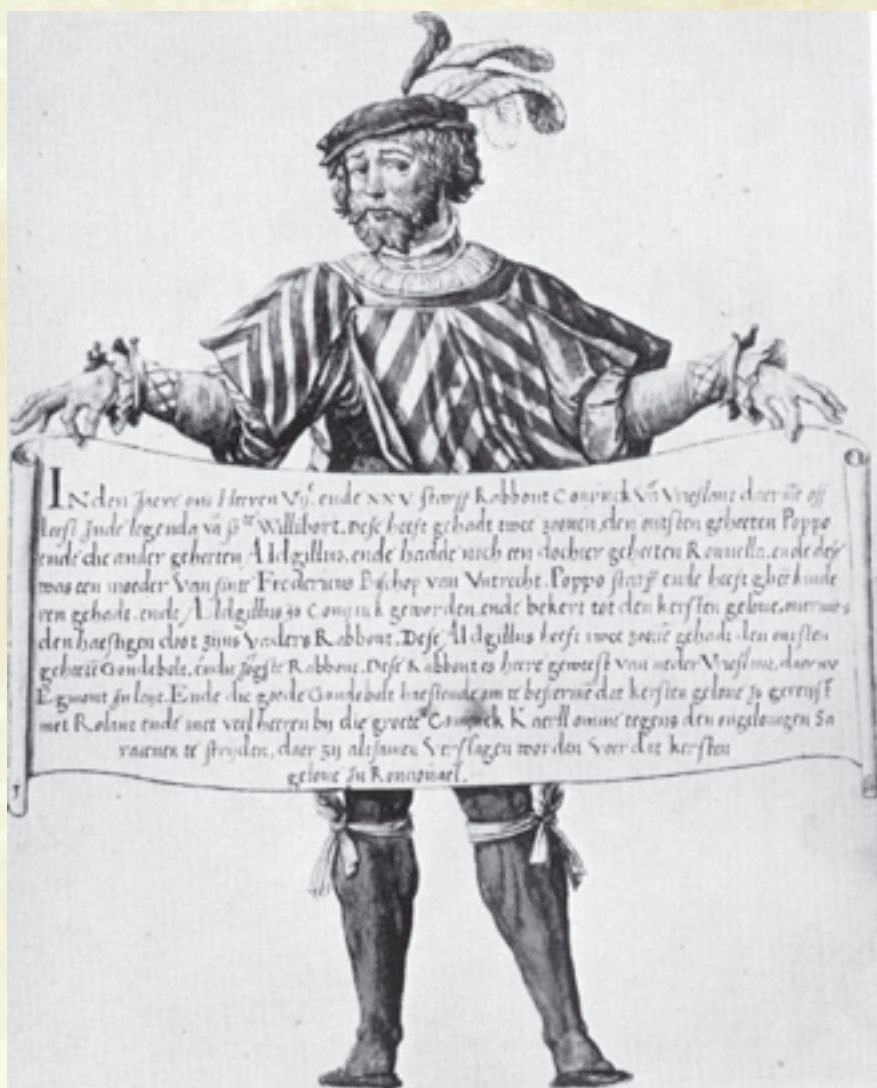 INden Jaere ons Heeren Vijc. ende xxv. starff Rabbout Coninck vā Vrieslant daer mē off
leest Inde legenda vā ste Willibort. Dese heeft gehadt twee zoonen, den outsten geheeten Poppo
ende die ander geheeten Aldgillus, ende hadde noch een dochter geheeten Konnella, ende dese
was een moeder van sinte Fredericus Bischop van Vutrecht. Poppo starff ende heeft gheē kinde
ren gehadt. ende Aldgillus is Coninck geworden, ende bekert tot den kersten gelove, overmits
den haestigen doot zijns Vaders Rabbout. Dese Aldgillus heeft twee zoonē gehadt den outsten
geheetē Gondebolt, ende joēgste Rabbout. Dese Rabbout es heere geweest van neder Vrieslant, daer nu
Egmont in leyt. Ende die goede Gondebolt haestende om te bescermē dat kersten gelove is gereyst
met Rolant ende met veel heeren by die groete Coninck Kaerll omme tegens den ongelovigen Sa
racenen te strijden, daer zij altsamen verslagen worden voer dat kersten
gelove In Roncivael.